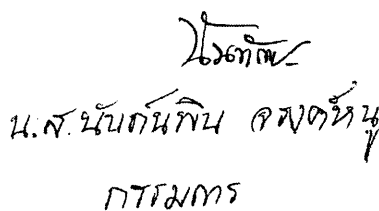 น.ส.นันทน์พิน จรงค์หนู
กรรมการ